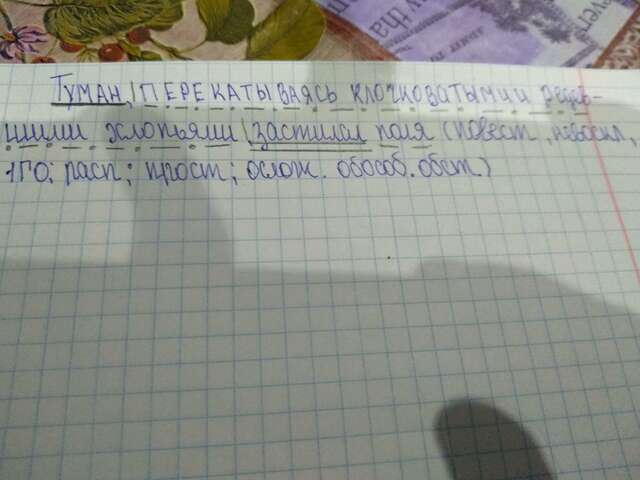 Туман, |ПЕРЕКАТЫВАЯСЬ КЛОЧКОВАТЫМИ редею-
щими хлопьями| застилал поля (повест, невоскл,
1ГО; расп; прост; ослож. обособ. обст)